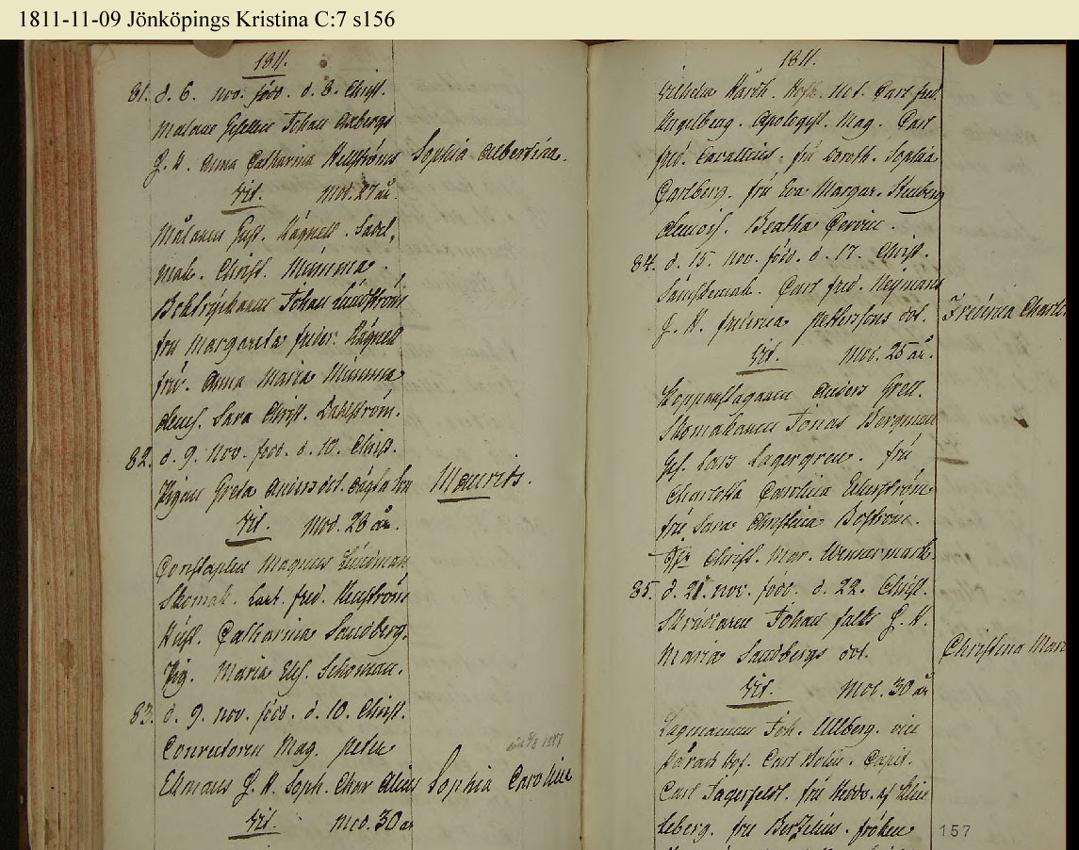 1811-11-09 Jönköpings Kristina C:7 s156
1811.
81. d. 6. nov. född. d. 8. Christ.
Målare Gesellen Johan Axbergs
J. H. Anna Catharina Hellströms Sophia Albertina.
Vit. Mod. 27 år.
Målaren Gust. Lägnell. Sadel,
mak. Christ. Mimma
Boktryckaren Johan Lundström
fru Margareta Lägnell
fru. Anna Maria Mimma
demoif. Sara Christ. Dahlström.
82. d. 9. nov. född. d. 10. Christ.
Pigan Greta Anders dot. Mauritz.
Vit. Mod. 28 år.
Constapeln Magnus Lindman
Skomak. fred.
Hust. Catharina Sandberg.
Pig. Maria Schoman.
83. d. 9. nov. född. d. 10. Christ.
Conrectoren Mag. Peter
1887
Ekmans J. H. Soph. Char Sophia Caroline
Vit. Mod. 30 år
1811.
Vilhelm Hårdh. Not. Carl fred.
Engelberg. Apologist. Mag. Carl
fred. Cavallius. fru Doroth. Sophia
Carlberg. fru Eva Margar.
demois. Beatha
84. d. 15. nov. född. d. 17. Christ.
Carl fred. Neijmans
J. H. frederica Pettersons dot. Frederica Charlo
Vit. Mod. 25 år.
Kopparslagaren Anders Gren.
Skomakaren Jonas Bergman
Ges. Lars Lagergren. fru
Charlotta Carolina
fru Sara Christina Boström.
Jfr Christ. Mar. Wennermark
85. d. 21. nov. född. d. 22. Christ.
Skräddaren Johan falks J. H.
Maria Sandbergs dot. Christina Mari
Vit. Mod. 30 år
Lagmannen Joh. Ullberg. vice
Härads Höf. Carl Bohm. Capit.
Carl Lagerfeldt. fru Hedv. af Klin
teberg. fru Berzelius. fröken
157